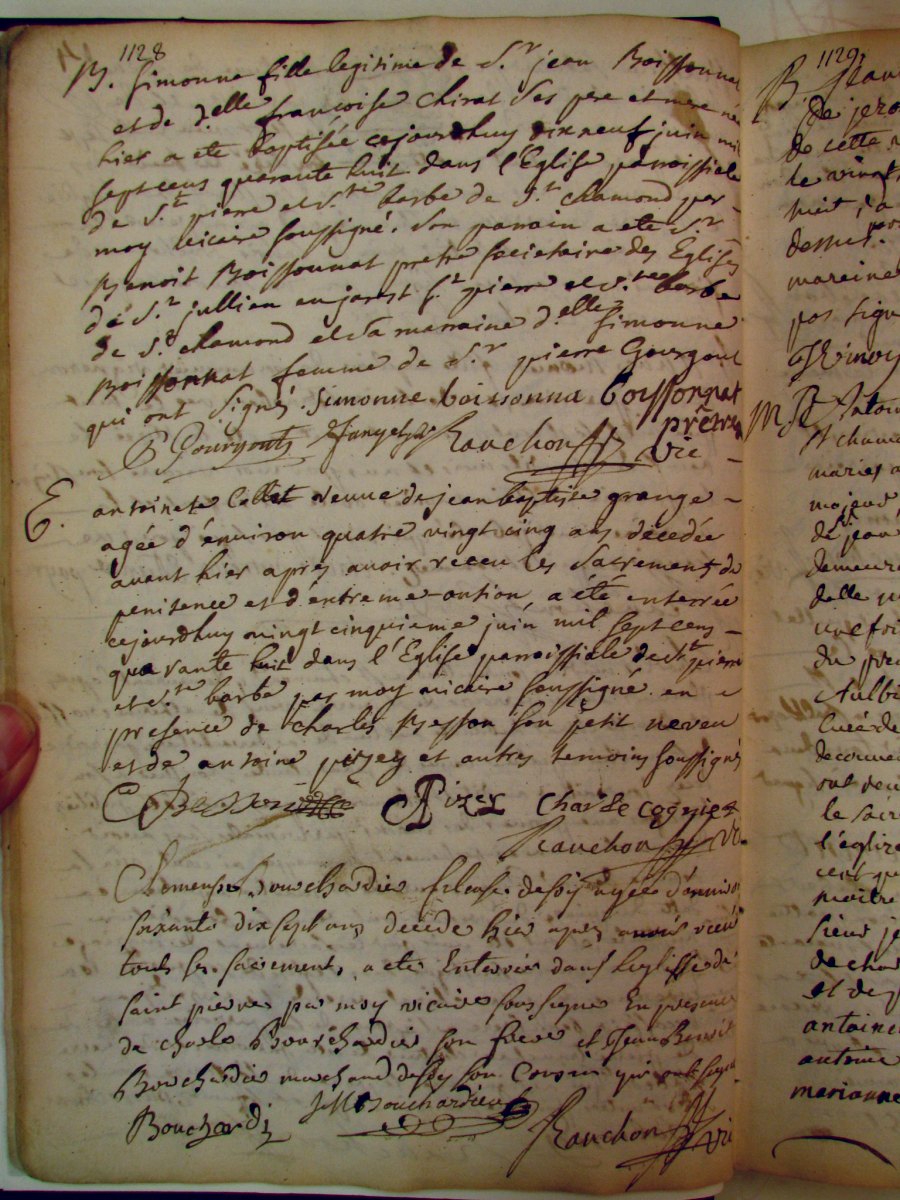 1128
B. Simonne fille legitime de S.r jean Boissonnat
et de d.elle francoise chirat ses pere et mere née
hier a eté baptisée cejourdhuy dixneuf juin mil
sept cens quarante huit dans l'Eglise parroissiale
de S.t pierre et S.te barbe de S.t chamond par
moy vicaire soussigné. son parrain a eté S.r
Benoit Boissonnat pretre societaire des Eglises
de S.t jullien en jarest S.t pierre et S.te barbe
de S.t chamond et sa marraine d.elle Simonne
Boissonnat femme de S.r pierre Gourgout
qui ont signé. Simonne boissonna boissonnat
prêtre
P Gourgout Ranchon vic
E. antoinete Collet veuve de jean baptiste grange
agée d'environ quatre vingt cinq ans décedée
avant hier aprés avoir receu les Sacrements de
penitence et d'extreme-ontion a été enterrée
cejourdhuy vingt cinquieme juin mil sept cens
quarante huit dans l'Eglise parroissiale de S.t pierre
et S.te barbe par moy vicaire soussigné en
presence de charles Besson son petit neveu
et de antoine pizey et autres temoins soussignés
C Besson A Pizey Charle
Ranchon vic
Clemense Bouchardie fileuse agée d'environ
soixante dix sept ans decede hier apres avoir receu
touts ses sacements a ete Enterrée dans leglisse de
saint pierre par moy vicaire soussigne En presence
de charle Bourchardie son frere et Jean Benoit
Bouchardie marchand son Cousin qui ont signé
Bouchardi JB Bouchardieu Ranchon vic
1129
B.
de cette
le vingt
huit
dessus
mareine
pas signé
M.
mariés
majeur
de jean
une foi
du pre
decouve
le sacre
l'églize
cent qu
maitre
sieur je
de char
et de
antoine
antoine
marianne